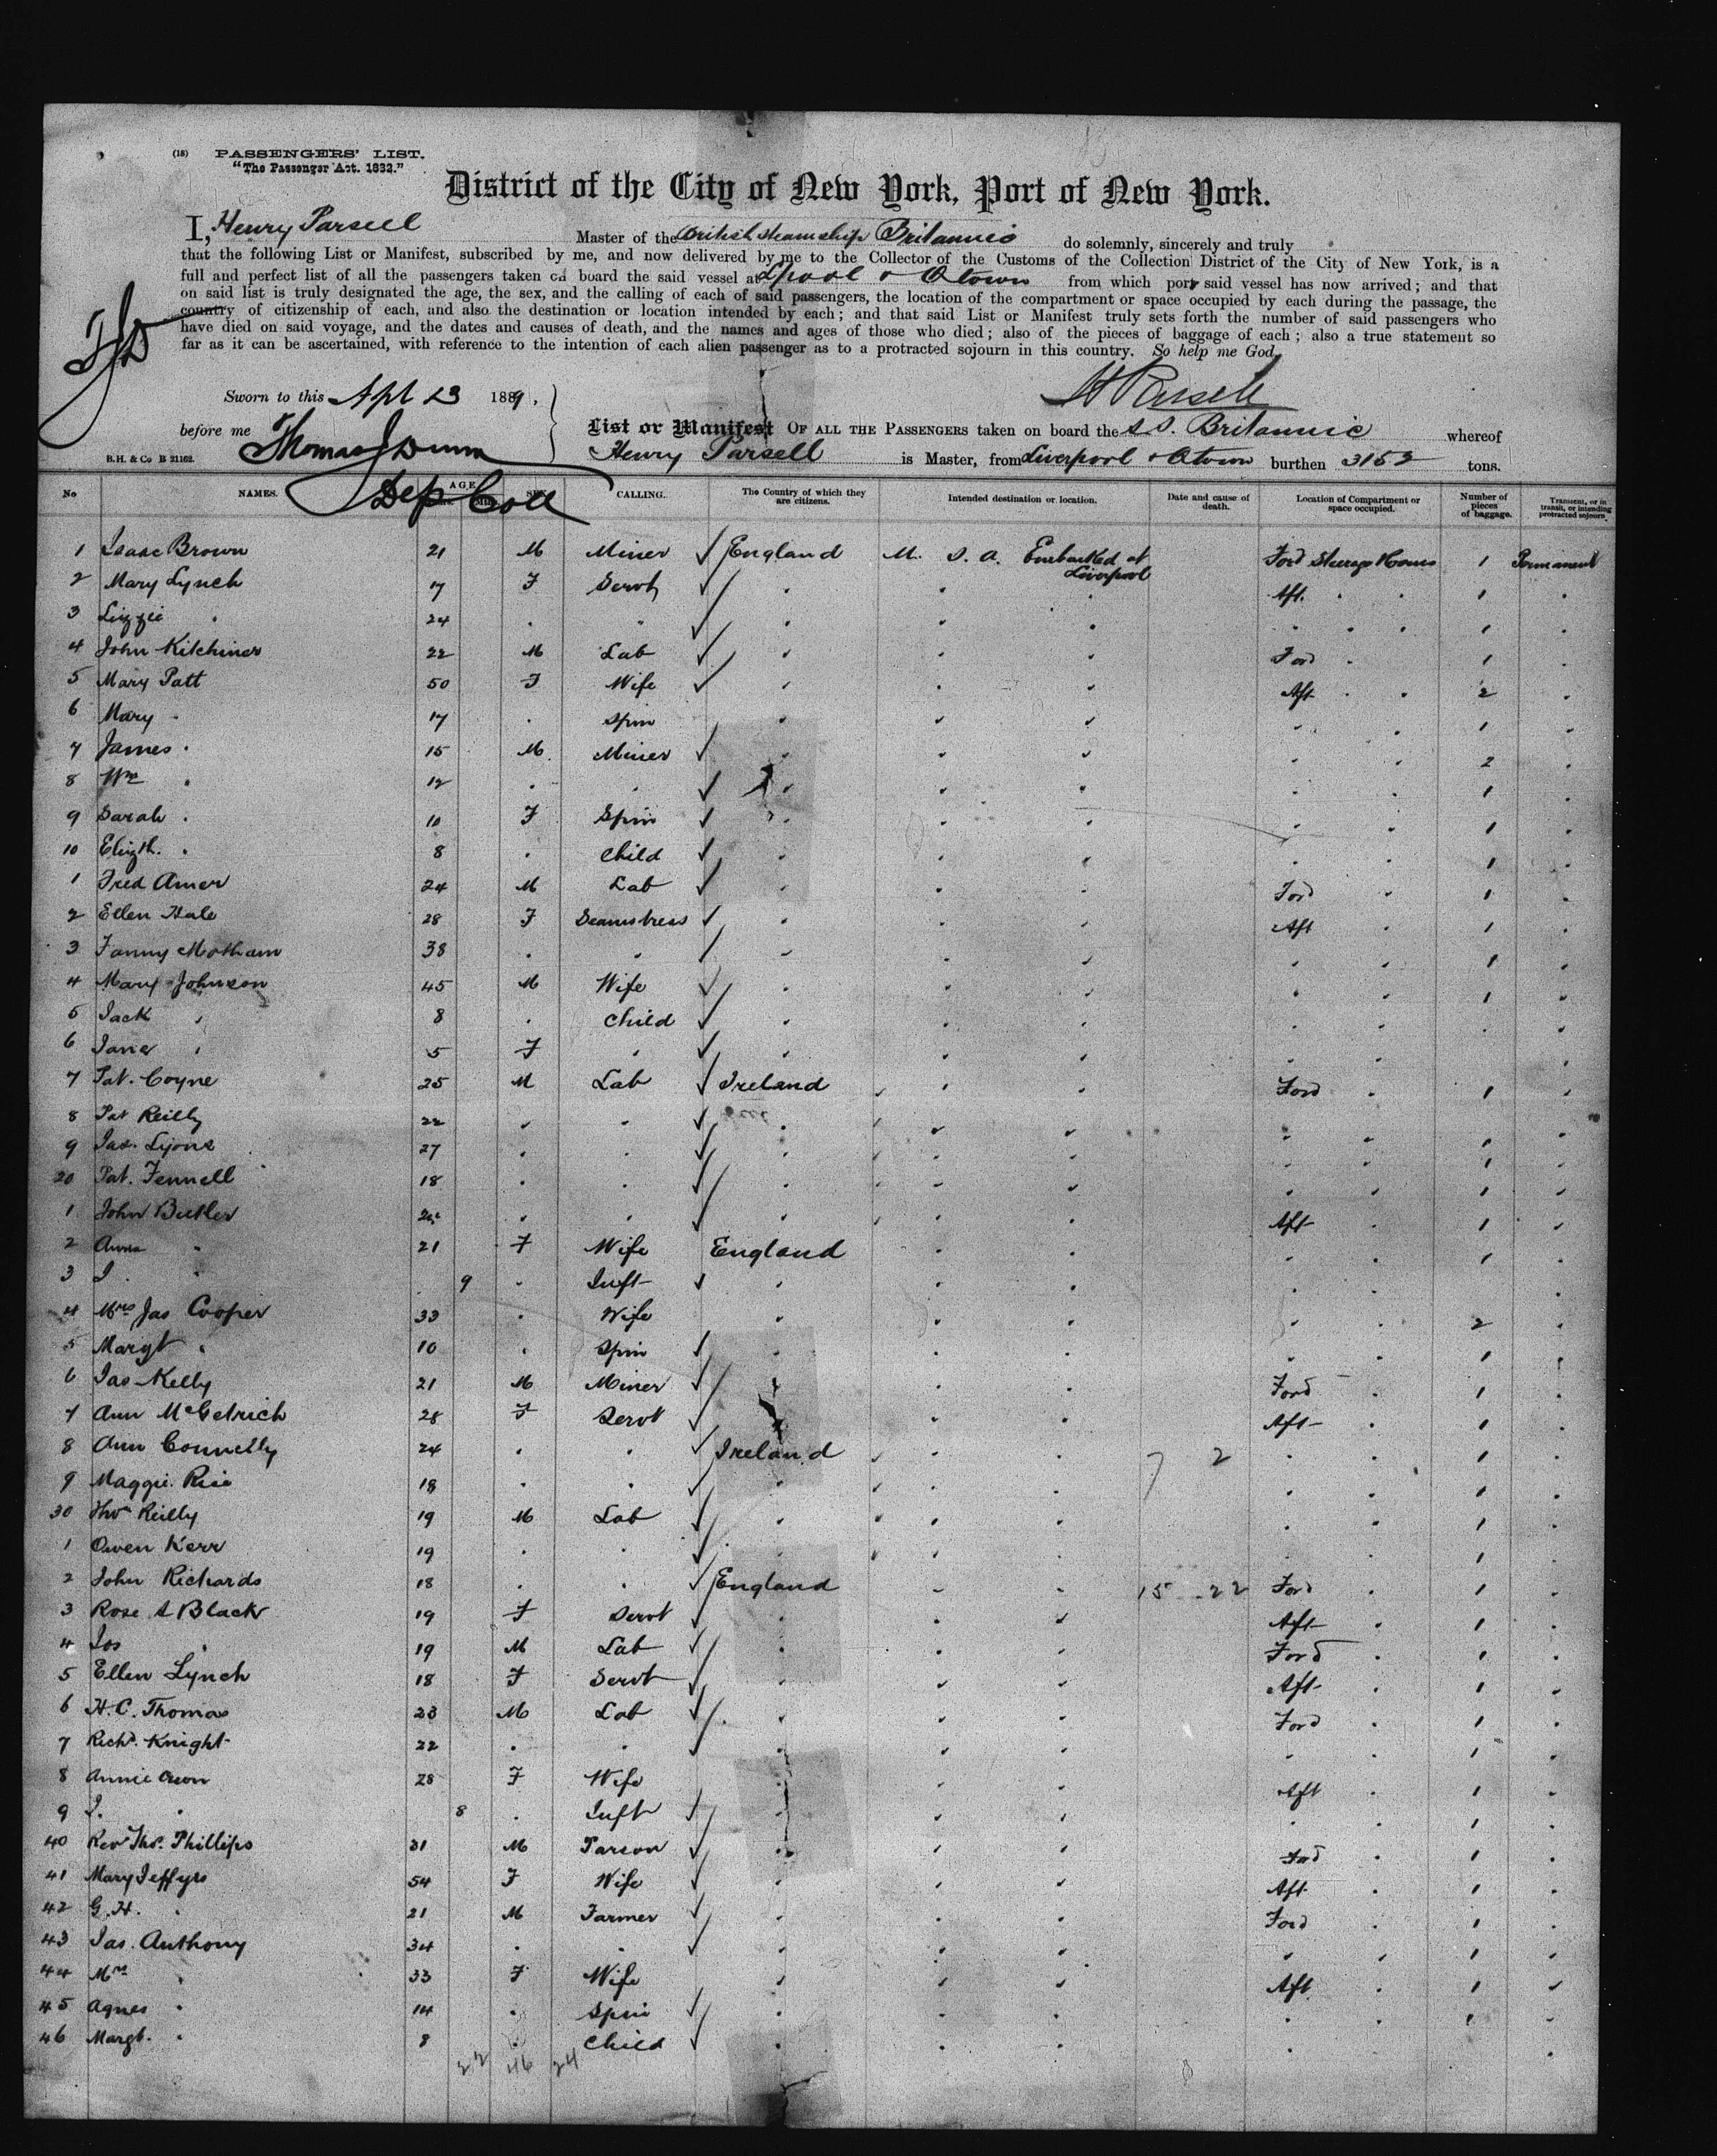 (18) PASSENGERS' LIST.
"The Passenger Act. 1882."
District of the City of New York, Port of New York.
I, Henry Parsell Master of the British steamship Britannic do solemnly, sincerely and truly
that the following List or Manifest, subscribed by me, and now delivered by me to the Collector of the Customs of the Collection District of the City of New York, is a
full and perfect list of all the passengers taken on board the said vessel at Lpool & Qtown from which port said vessel has now arrived; and that
on said list is truly designated the age, the sex, and the calling of each of said passengers, the location of the compartment or space occupied by each during the passage, the
country of citizenship of each, and also the destination or location intended by each; and that said List or Manifest truly sets forth the number of said passengers who
have died on said voyage, and the dates and causes of death, and the names and ages of those who died; also of the pieces of baggage of each; also a true statement so
far as it can be ascertained, with reference to the intention of each alien passenger as to a protracted sojourn in this country. So help me God.
TJD
Sworn to this Apl 23 1889,
H Parsell
before me Thomas J Dunn
Dep Coll
List or Manifest OF ALL THE PASSENGERS taken on board the S.S. Britannic whereof
B.H. & Co B 21162. Henry Parsell is Master, from Liverpool & Qtown burthen 3152 tons.
No NAMES. AGE SEX. CALLING. The Country of which they are citizens. Intended destination or location. Date and cause of death. Location of Compartment or space occupied. Number of pieces of baggage. Transient, or in transit, or intending protracted sojourn
1 Isaac Brown 21 M Miner England U. S. A. Embarked at Liverpool Ford Steerage Homes 1 Permanent
2 Mary Lynch 17 F Servt Aft. 1
3 Lizzie 24 1
4 John Kitchiner 22 M Lab Ford 1
5 Mary Patt 50 F Wife Aft 2
6 Mary 17 Spin 1
7 James 15 M Miner 2
8 Wm 12 1
9 Sarah 10 F Spin 1
10 Elizth. 8 Child 1
1 Fred Amer 24 M Lab Ford 1
2 Ellen Hale 28 F Seamstress Aft 1
3 Fanny Motham 38 1
4 Mary Johnson 45 M Wife 1
5 Jack 8 Child
6 Jane 5 F
7 Pat. Coyne 25 M Lab Ireland Ford 1
8 Pat Reilly 22 1
9 Jas. Lyons 27 1
20 Pat. Fennell 18 1
1 John Butler Aft 1
2 Anna 21 F Wife England 1
3 J. 9 Inft
4 Mrs Jas Cooper 33 Wife 2
5 Margt 10 Spin 1
6 Jas Kelly 21 M Miner Ford 1
7 Ann McGetrich 28 F Servt Aft 1
8 Ann Connelly 24 Ireland 7 2 1
9 Maggie Rice 18 1
30 Thos Reilly 19 M Lab 1
1 Owen Kerr 19 1
2 John Richards 18 England 15 22 Ford 1
3 Rose A Black 19 F Servt Aft 1
4 Jos 19 M Lab Ford 1
5 Ellen Lynch 18 F Servt Aft 1
6 H.C. Thomas 23 M Lab Ford 1
7 Richd. Knight 22 1
8 Annie 28 F Wife Aft 1
9 J. 8 Inft 1
40 Rev Thos. Phillips 31 M Parson Ford 1
41 Mary Jeffyrs 54 F Wife Aft 1
42 G.H. 21 M Farmer Ford 1
43 Jas. Anthony 34 1
44 Mrs 33 F Wife Aft 1
45 Agnes 14 Spin 1
46 Margt. 8 Child
22 46 24